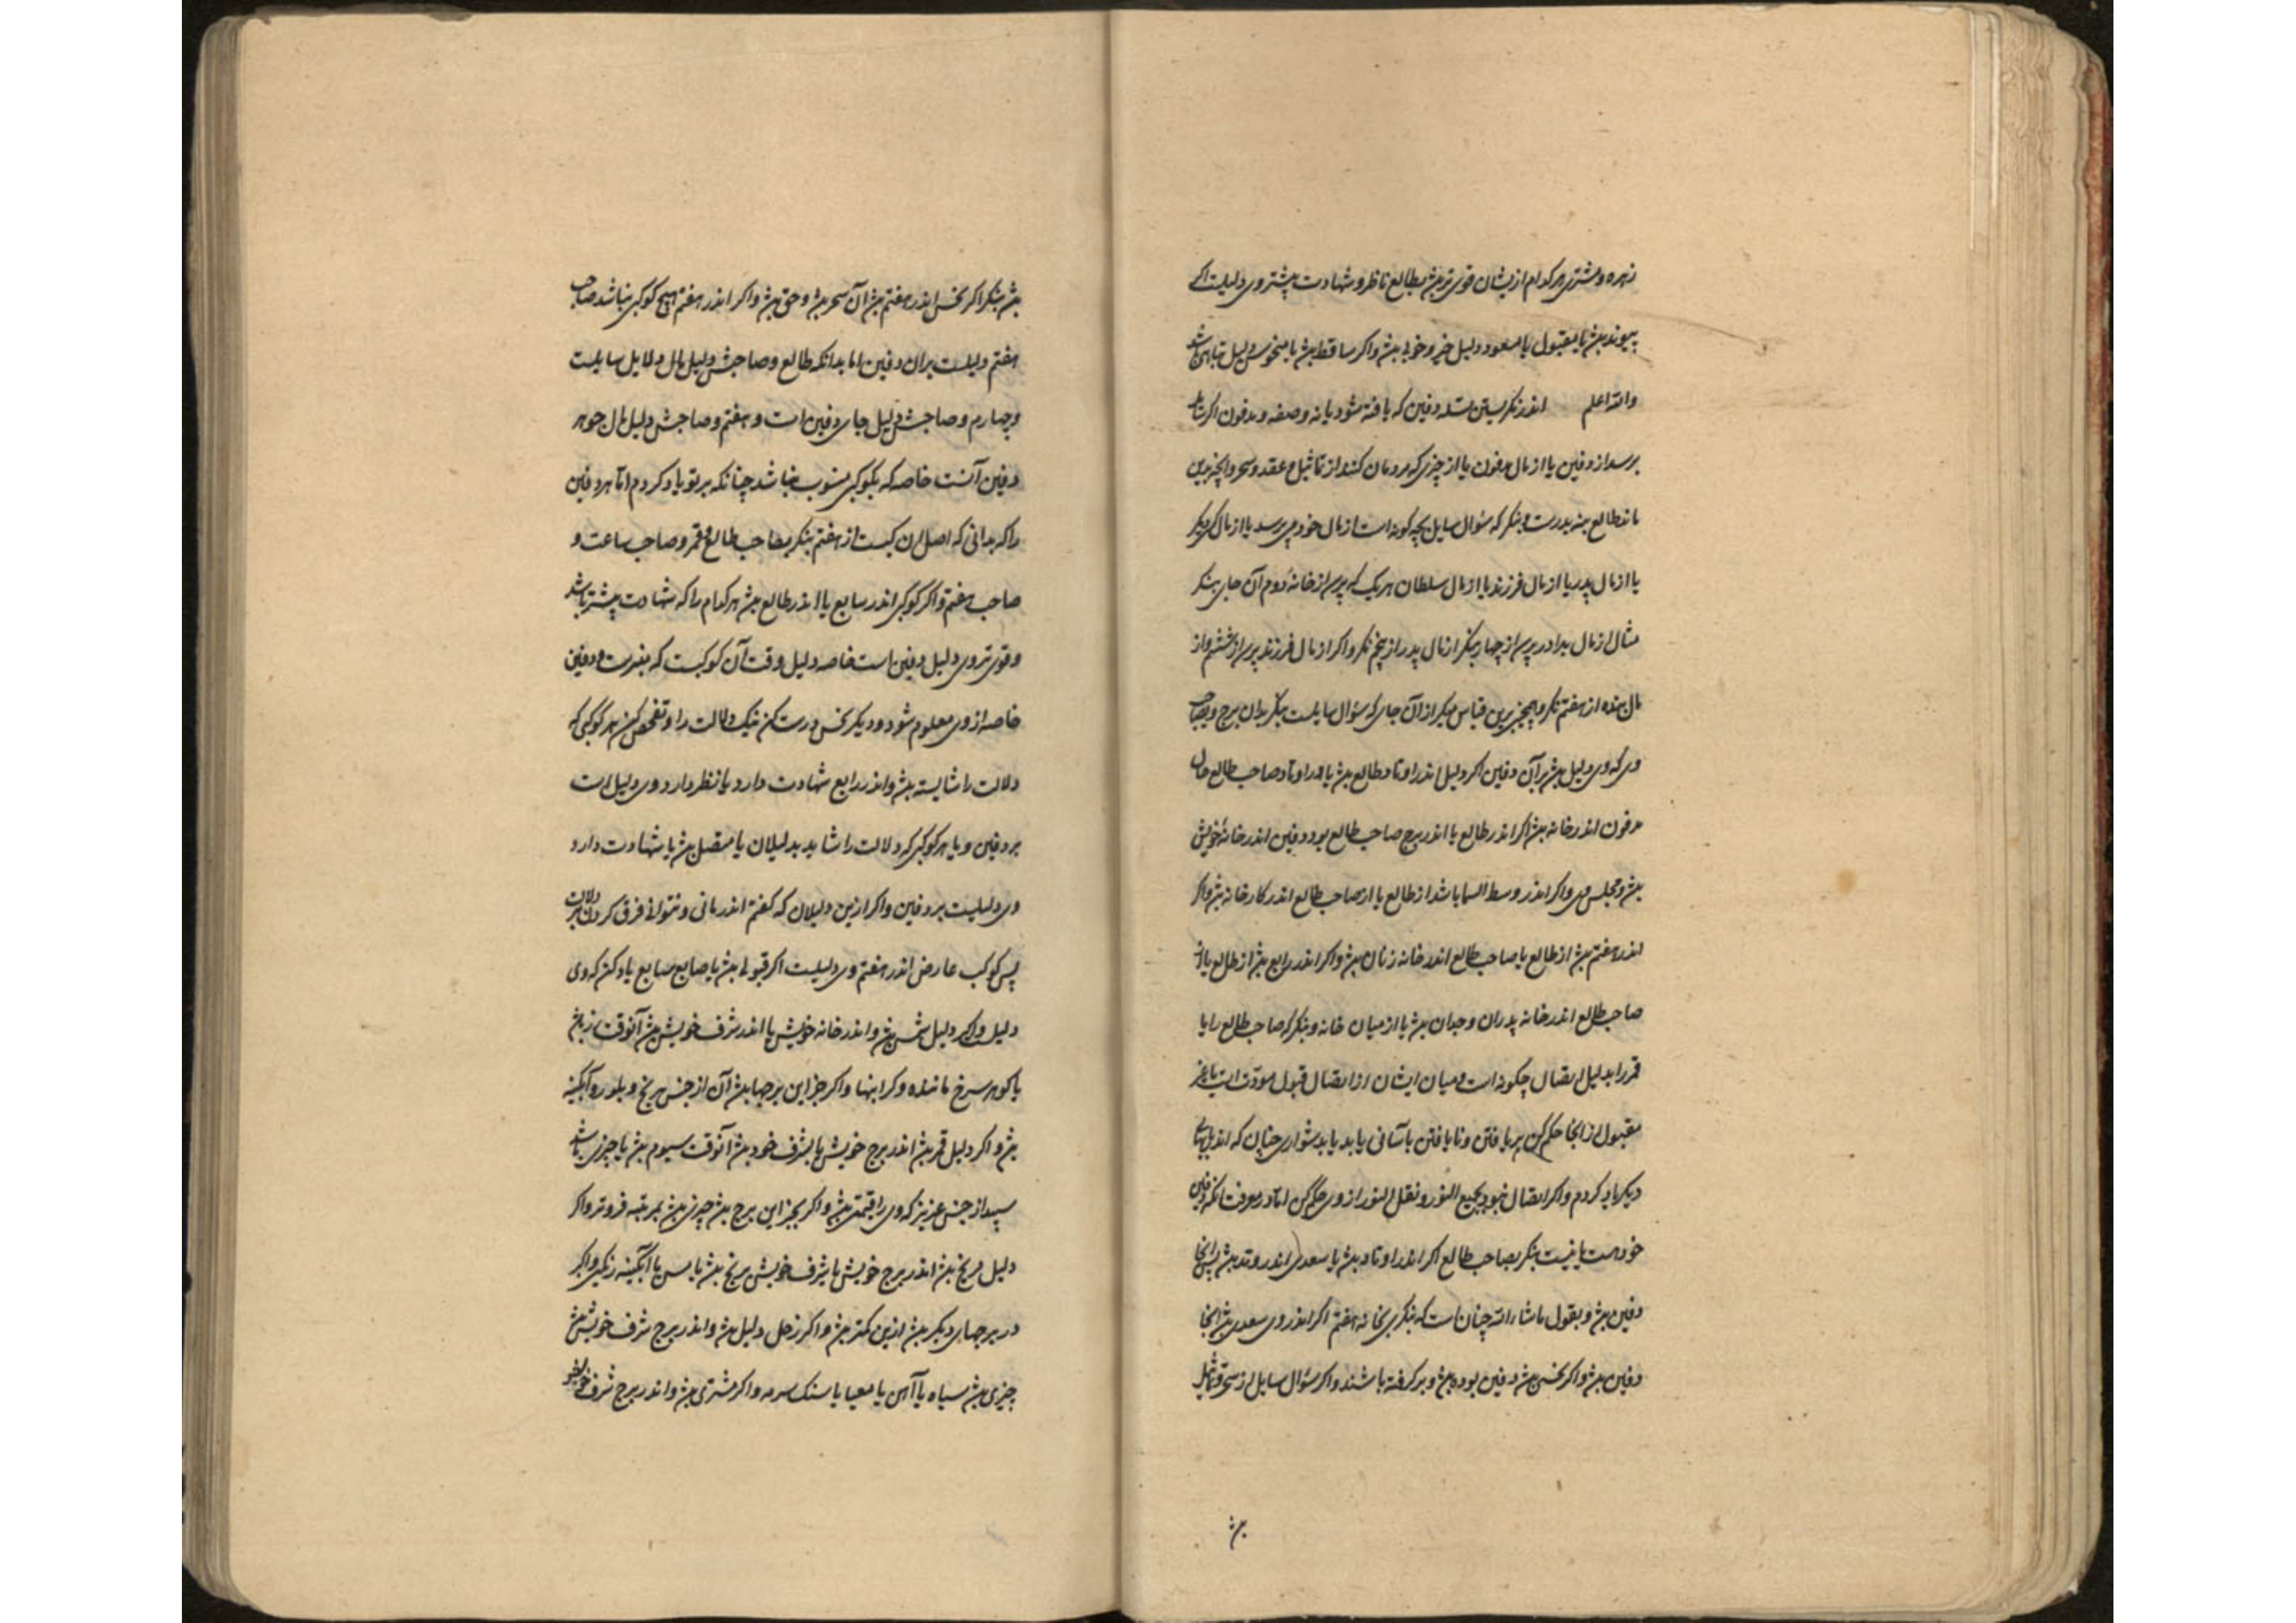 زهره و مشتری هر کدام ازیشان قوی تر بش بطالع ناظر و شهادت بیشتر وی دلیلست اکر
پیوند بش با مقبول یا مسعود دلیل خیر و خوبی بش و اکر ساقط بش یا منحوس دلیل تباهی باشد
والله اعلم اندر نکریستن مسله دفین که یافته شود یا نه وصفه و مدفون اکر سایل
برسد از دفین یا از مال مدفون یا از چیزی که مردمان کنند از تماثیل و عقد و سحر و انچه بدین
ماند طالع بنه بدرست و بنکر که سؤال سایل بچه کونه است از مال خود می پرسد یا از مال کسی دیکر
یا از مال پدر یا از مال فرزند یا از مال سلطان هر یک که پرسد از خانه دوم آن جای بنکر
مثال از مال برادر پرسد از چهارم بنکر از مال پدر از پنجم نکر و اکر از مال فرزند پرسد از ششم و از
مال بنده از هفتم نکر و همچنین برین قیاس میکن از آن جای که سؤال سایلست بنکر بدان برج و بصاحب
وی که وی دلیل بش بر آن دفین اکر دلیل اندر اوتاد طالع بش یا اندر اوتاد صاحب طالع مال
مدفون اندر خانه بش اکر اندر طالع یا اندر برج صاحب طالع بود دفین اندر خانه خویش
بش و مجلس وی و اکر اندر وسط السما باشد از طالع یا از صاحب طالع اندر کارخانه بش و اکر
اندر هفتم بش از طالع یا صاحب طالع اندر خانه زنان بش و اکر اندر رابع بش از طالع یا از
صاحب طالع اندر خانه پدران و جدان بش یا از میان خانه و بنکر که صاحب طالع را یا
قمر را بدلیل اتصال چکونه است و میان ایشان از اتصال قبول مودت است یا غیر
مقبول از انجا حکم کن بر یافتن و نایافتن باسانی یابد یا بدشواری چنان که اندر بابهای
دیکر یاد کردم و اکر اتصال نبود بجمع النور و نقل النور از وی حکم کن اما در معرفت انکه دفین
خود هست یا نیست بنکر بصاحب طالع اکر اندر اوتاد بش یا سعدی اندر وتد بش پس انجا
دفین بش و بقول ماشاء الله چنان است که بنکری بخانه هفتم اکر اندر وی سعدی بش انجا
دفین بش و اکر نحس بش دفین بوده بش و برکرفته باشند و اکر سؤال سایل از سحر و تماثیل
بش
بش بنکر اکر نحس اندر هفتم بش آن سحر بش و حق بش و اکر اندر هفتم هیچ کوکبی نباشد صاحب
هفتم دلیلست بران دفین اما بدانکه طالع و صاحبش دلیل مال و دلایل سایلست
و چهارم و صاحبش دلیل جای دفین است و هفتم و صاحبش دلیل مال جوهر
دفین آنست خاصه که بکوکبی منسوب نباشد چنانکه بر تو یاد کردم اما هر دفین
را که بدانی که اصل ان کیست از هفتم بنکر بصاحب طالع و قمر و صاحب ساعت و
صاحب هفتم و اکر کوکبی اندر سابع یا اندر طالع بش هر کدام را که شهادت بیشتر باشد
و قوی تر وی دلیل دفین است خاصه دلیل وقت آن کوکبست که بغربست و دفین
خاصه از وی معلوم شود و دیکر نحس درست کن نیک دلالت را و تفحص کن هر کوکبی که
دلالت را شایسته بش و اندر رابع شهادت دارد یا نظر دارد وی دلیل است
بر دفین و یا هر کوکبی که دلالت را شاید بدلیلان یا متصل بش یا شهادت دارد
وی دلیلیست بر دفین و اکر ازین دلیلان که کفتم اندر مانی و نتوانی فرق کردن دلالت
پس کوکب عارض اندر هفتم وی دلیلیست اکر قبولی بش یا صانع صانع یاد کن که وی
دلیل و اکر دلیل شمس بش و اندر خانه خویش یا اندر شرف خویش بش آنوقت زر بش
یا کوهر سرخ مانده و کرانبها و اکر جز این برجها بش آن از جنس برنج و بلور و آبکینه
بش و اکر دلیل قمر بش اندر برج خویش یا بشرف خود بش آنوقت سیم بش یا چیزی باشد
سپید از جنس عزیز که وی را قیمت بش و اکر بجز این برج بش چیزی بش بمرتبه فروتر و اکر
دلیل مریخ بش اندر برج خویش یا شرف خویش برنج بش یا مس یا آبکینه رنکین و اکر
در برجهای دیکر بش ازین کمتر بش و اکر زحل دلیل بش و اندر برج شرف خویش بش
چیزی بش سیاه یا آهن یا سنک سرمه و اکر مشتری بش و اندر برج شرف خویش